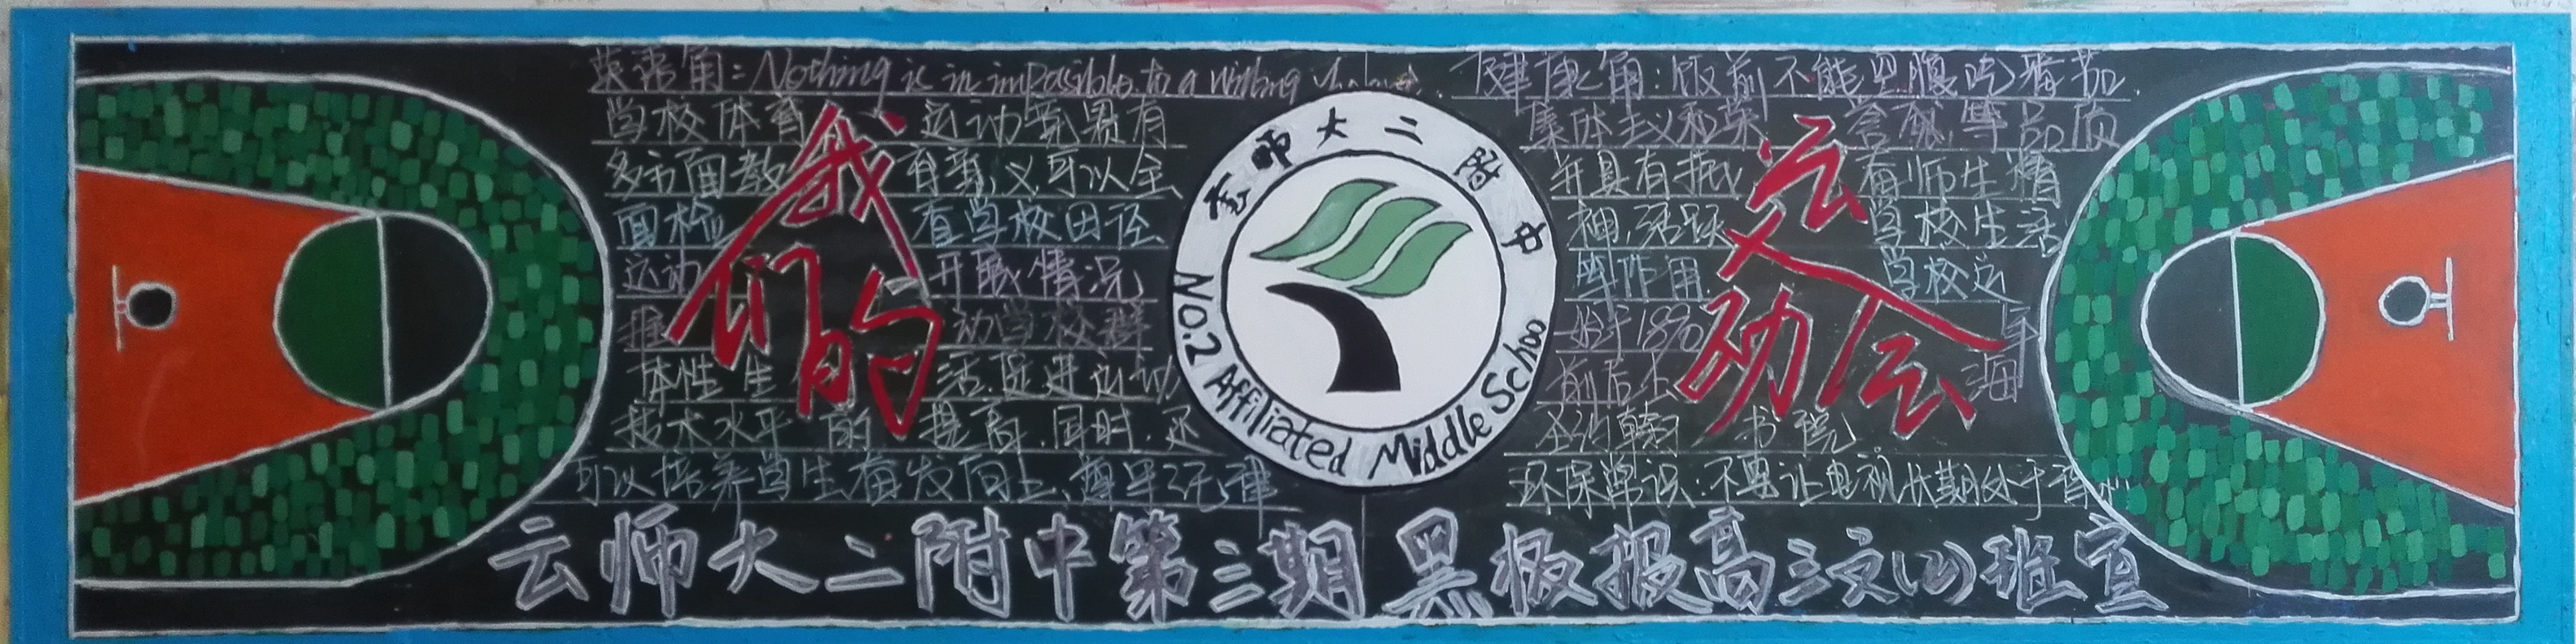 英语角：Nothing is in impossible to a willing
学校体育 运动竞赛有
多方面教 育意义可以全
面检 查学校田径
运动 开展情况
推 动学校群
体性生 活促进运动
技术水平 的 提高.同时.还
可以培养学生奋发向上、遵守纪律
我们的
云师大二附中
NO.2 Affiliated Middle Schoo
健康角：饭前不能空腹吃番茄.
集体主义和荣 誉感等品质
并具有振 奋师生精
神,活跃 学校生活
的作用 学校运
始于1890 年
前后上 海
圣约翰 书院
环保常识:不要让电视长期处于
运动会
云师大二附中第三期黑板报高三文(2)班宣